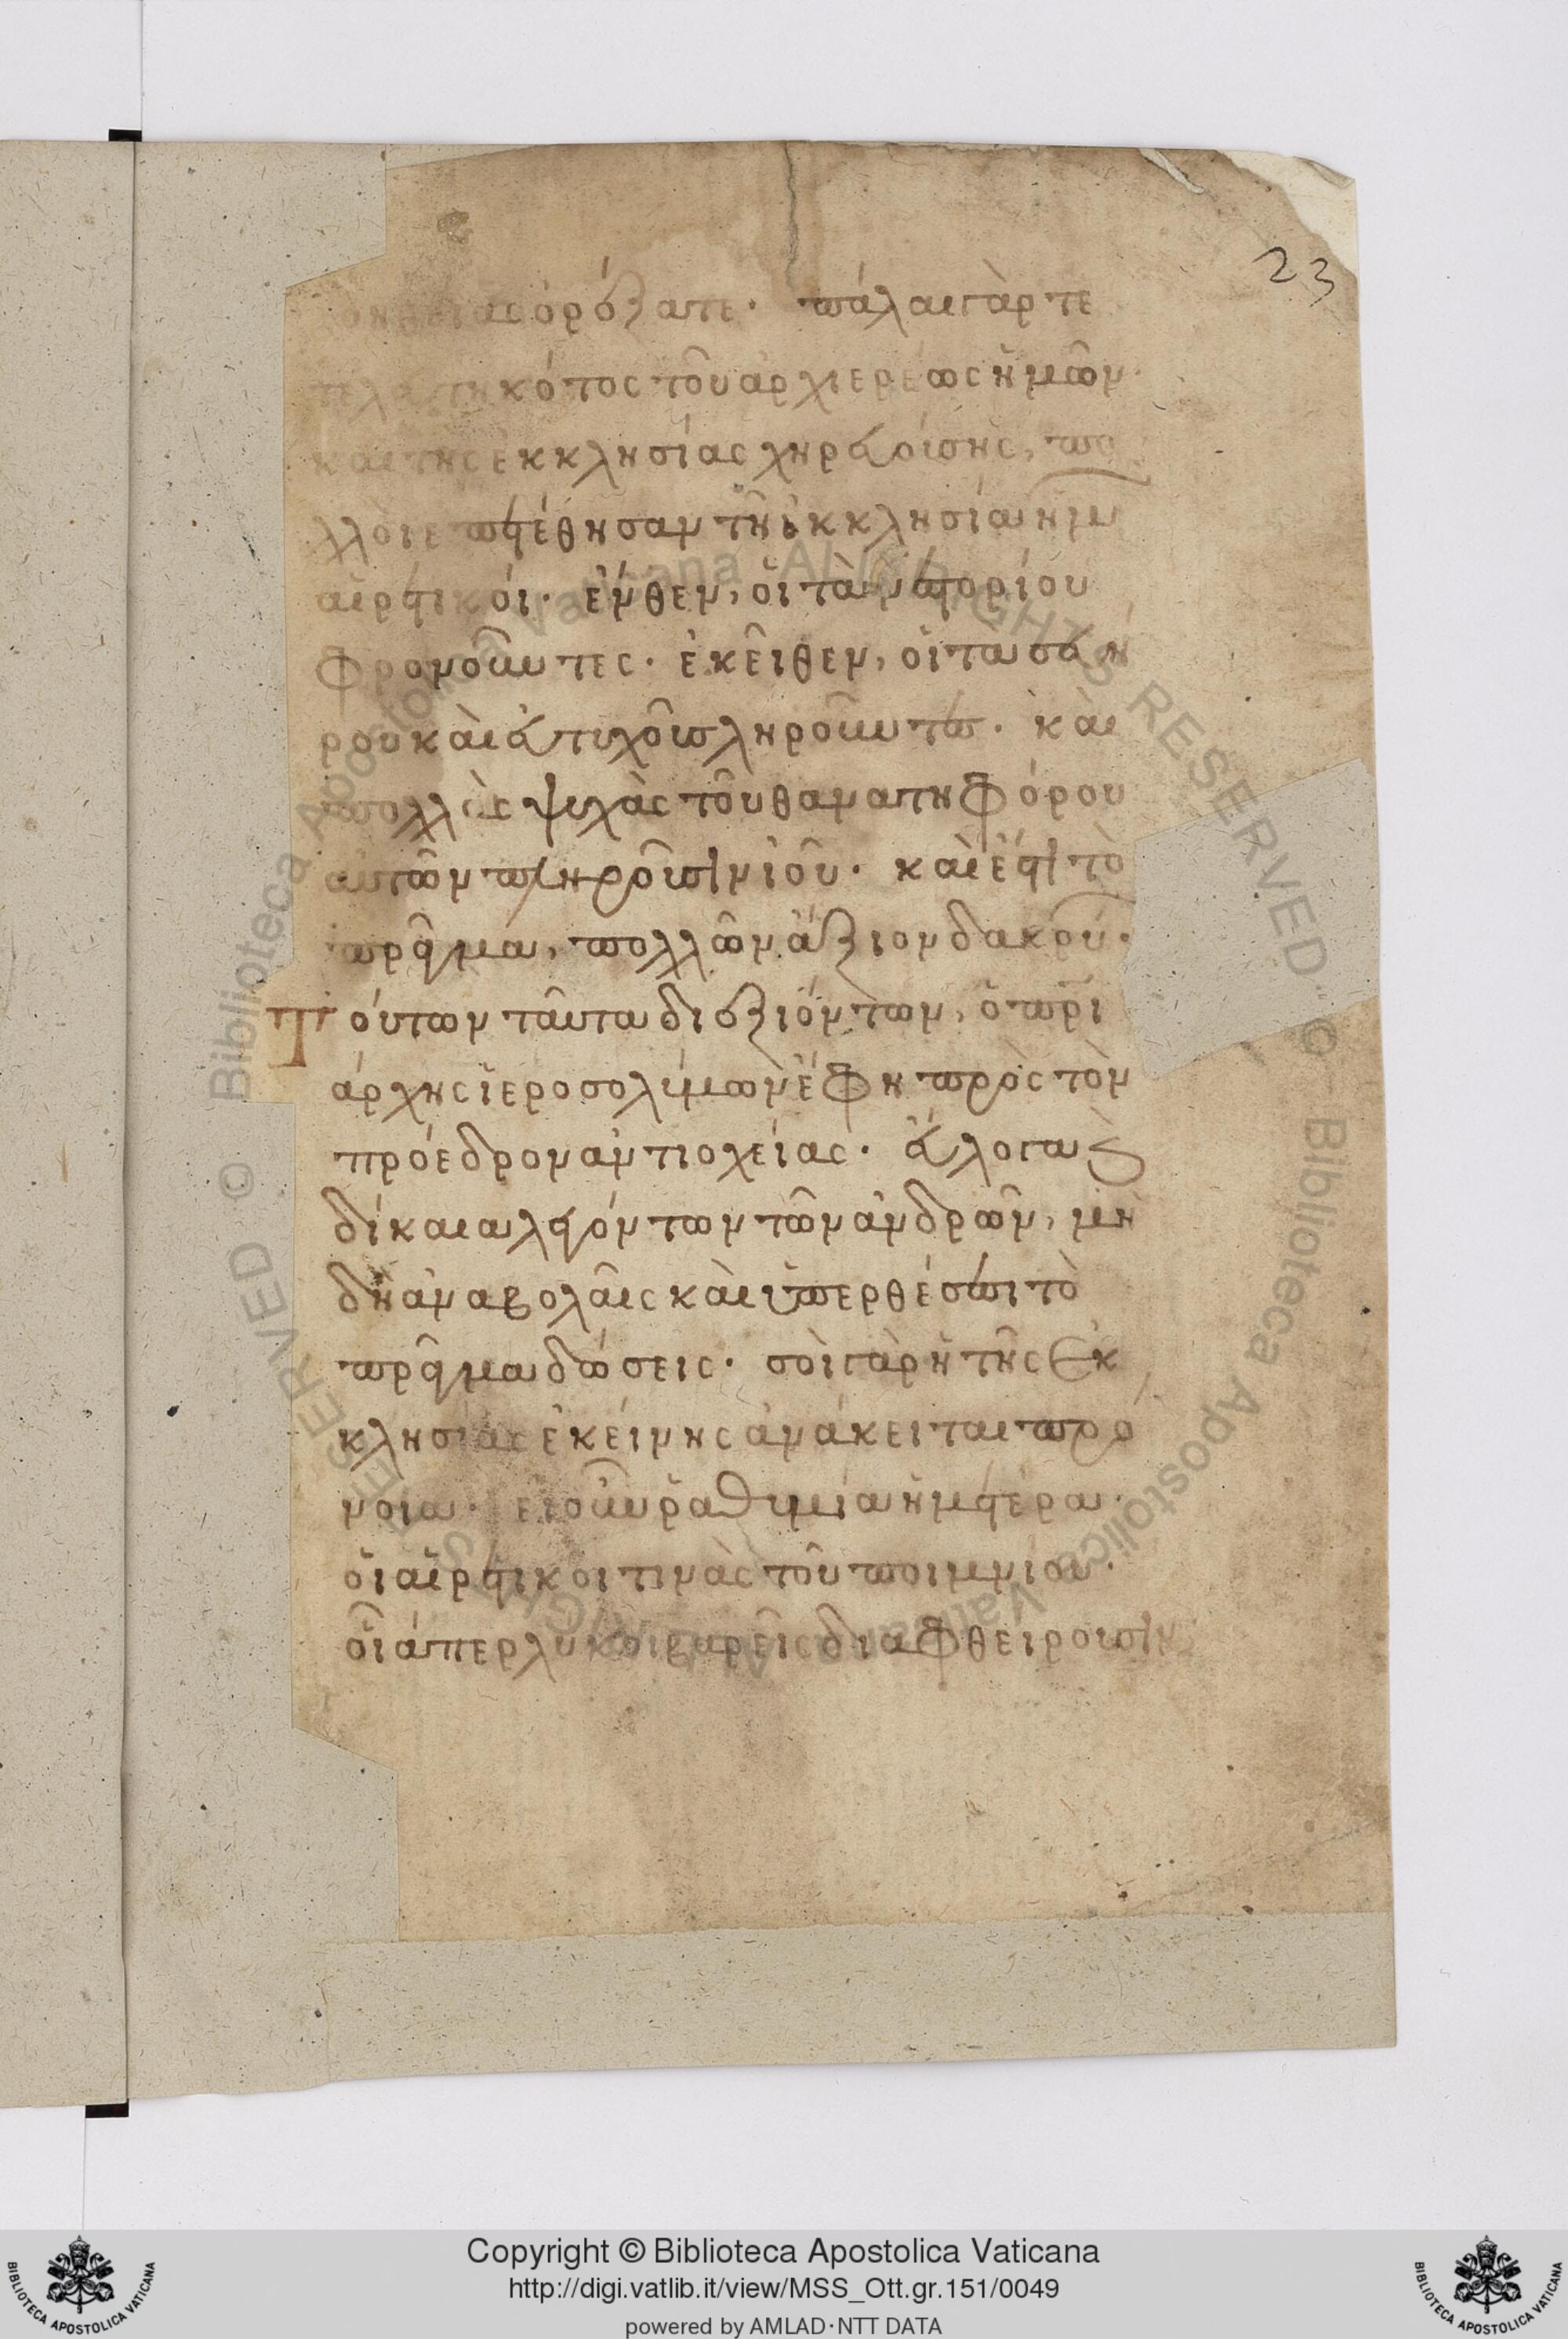 23
ὀρέξατε· πάλαι γὰρ τε
κότος τοῦ ἀρχιερέως ἡμῶν·
καὶ τῆς ἐκκλησίας χηρευούσης, πο
λλοὶ ἐπετέθησαν τῆ ἐκκλησία ἡμ
αἱρετικοί· ἔνθεν, οἱ τὰ νεστορίου
φρονοῦντες· ἐκεῖθεν, οἱ τὰ σευή
ρου καὶ εὐτυχοῦς πληροῦντες· καὶ
πολλὰς ψυχὰς τοῦ θανατηφόρου
αὐτῶν πληροῦσιν ἰοῦ· καὶ ἔστι τὸ
πρᾶγμα, πολλῶν ἄξιον δακρύ·
Τούτων ταῦτα διεξιόντων, ὁ πρι
άρχης ἱεροσολύμων ἔφη πρὸς τὸν
πρόεδρον ἀντιοχείας· εὔλογα καὶ
δίκαια λεγόντων τῶν ἀνδρῶν, μὴ
δὴ ἀναβολαῖς καὶ ὑπερθέσεσι τὸ
πρᾶγμα δώσεις· σοὶ γὰρ ἡ τῆς ἐκ
κλησίας ἐκείνης ἀνάκειται πρό
νοια· εἰ οὖν ῥαθυμία ἡμετέρα·
οἱ αἱρετικοὶ τινὰς τοῦ ποιμνίου·
οἷάπερ λύκοι βαρεῖς διαφθείρουσιν
Copyright © Biblioteca Apostolica Vaticana
http://digi.vatlib.it/view/MSS_Ott.gr.151/0049
powered by AMLAD·NTT DATA